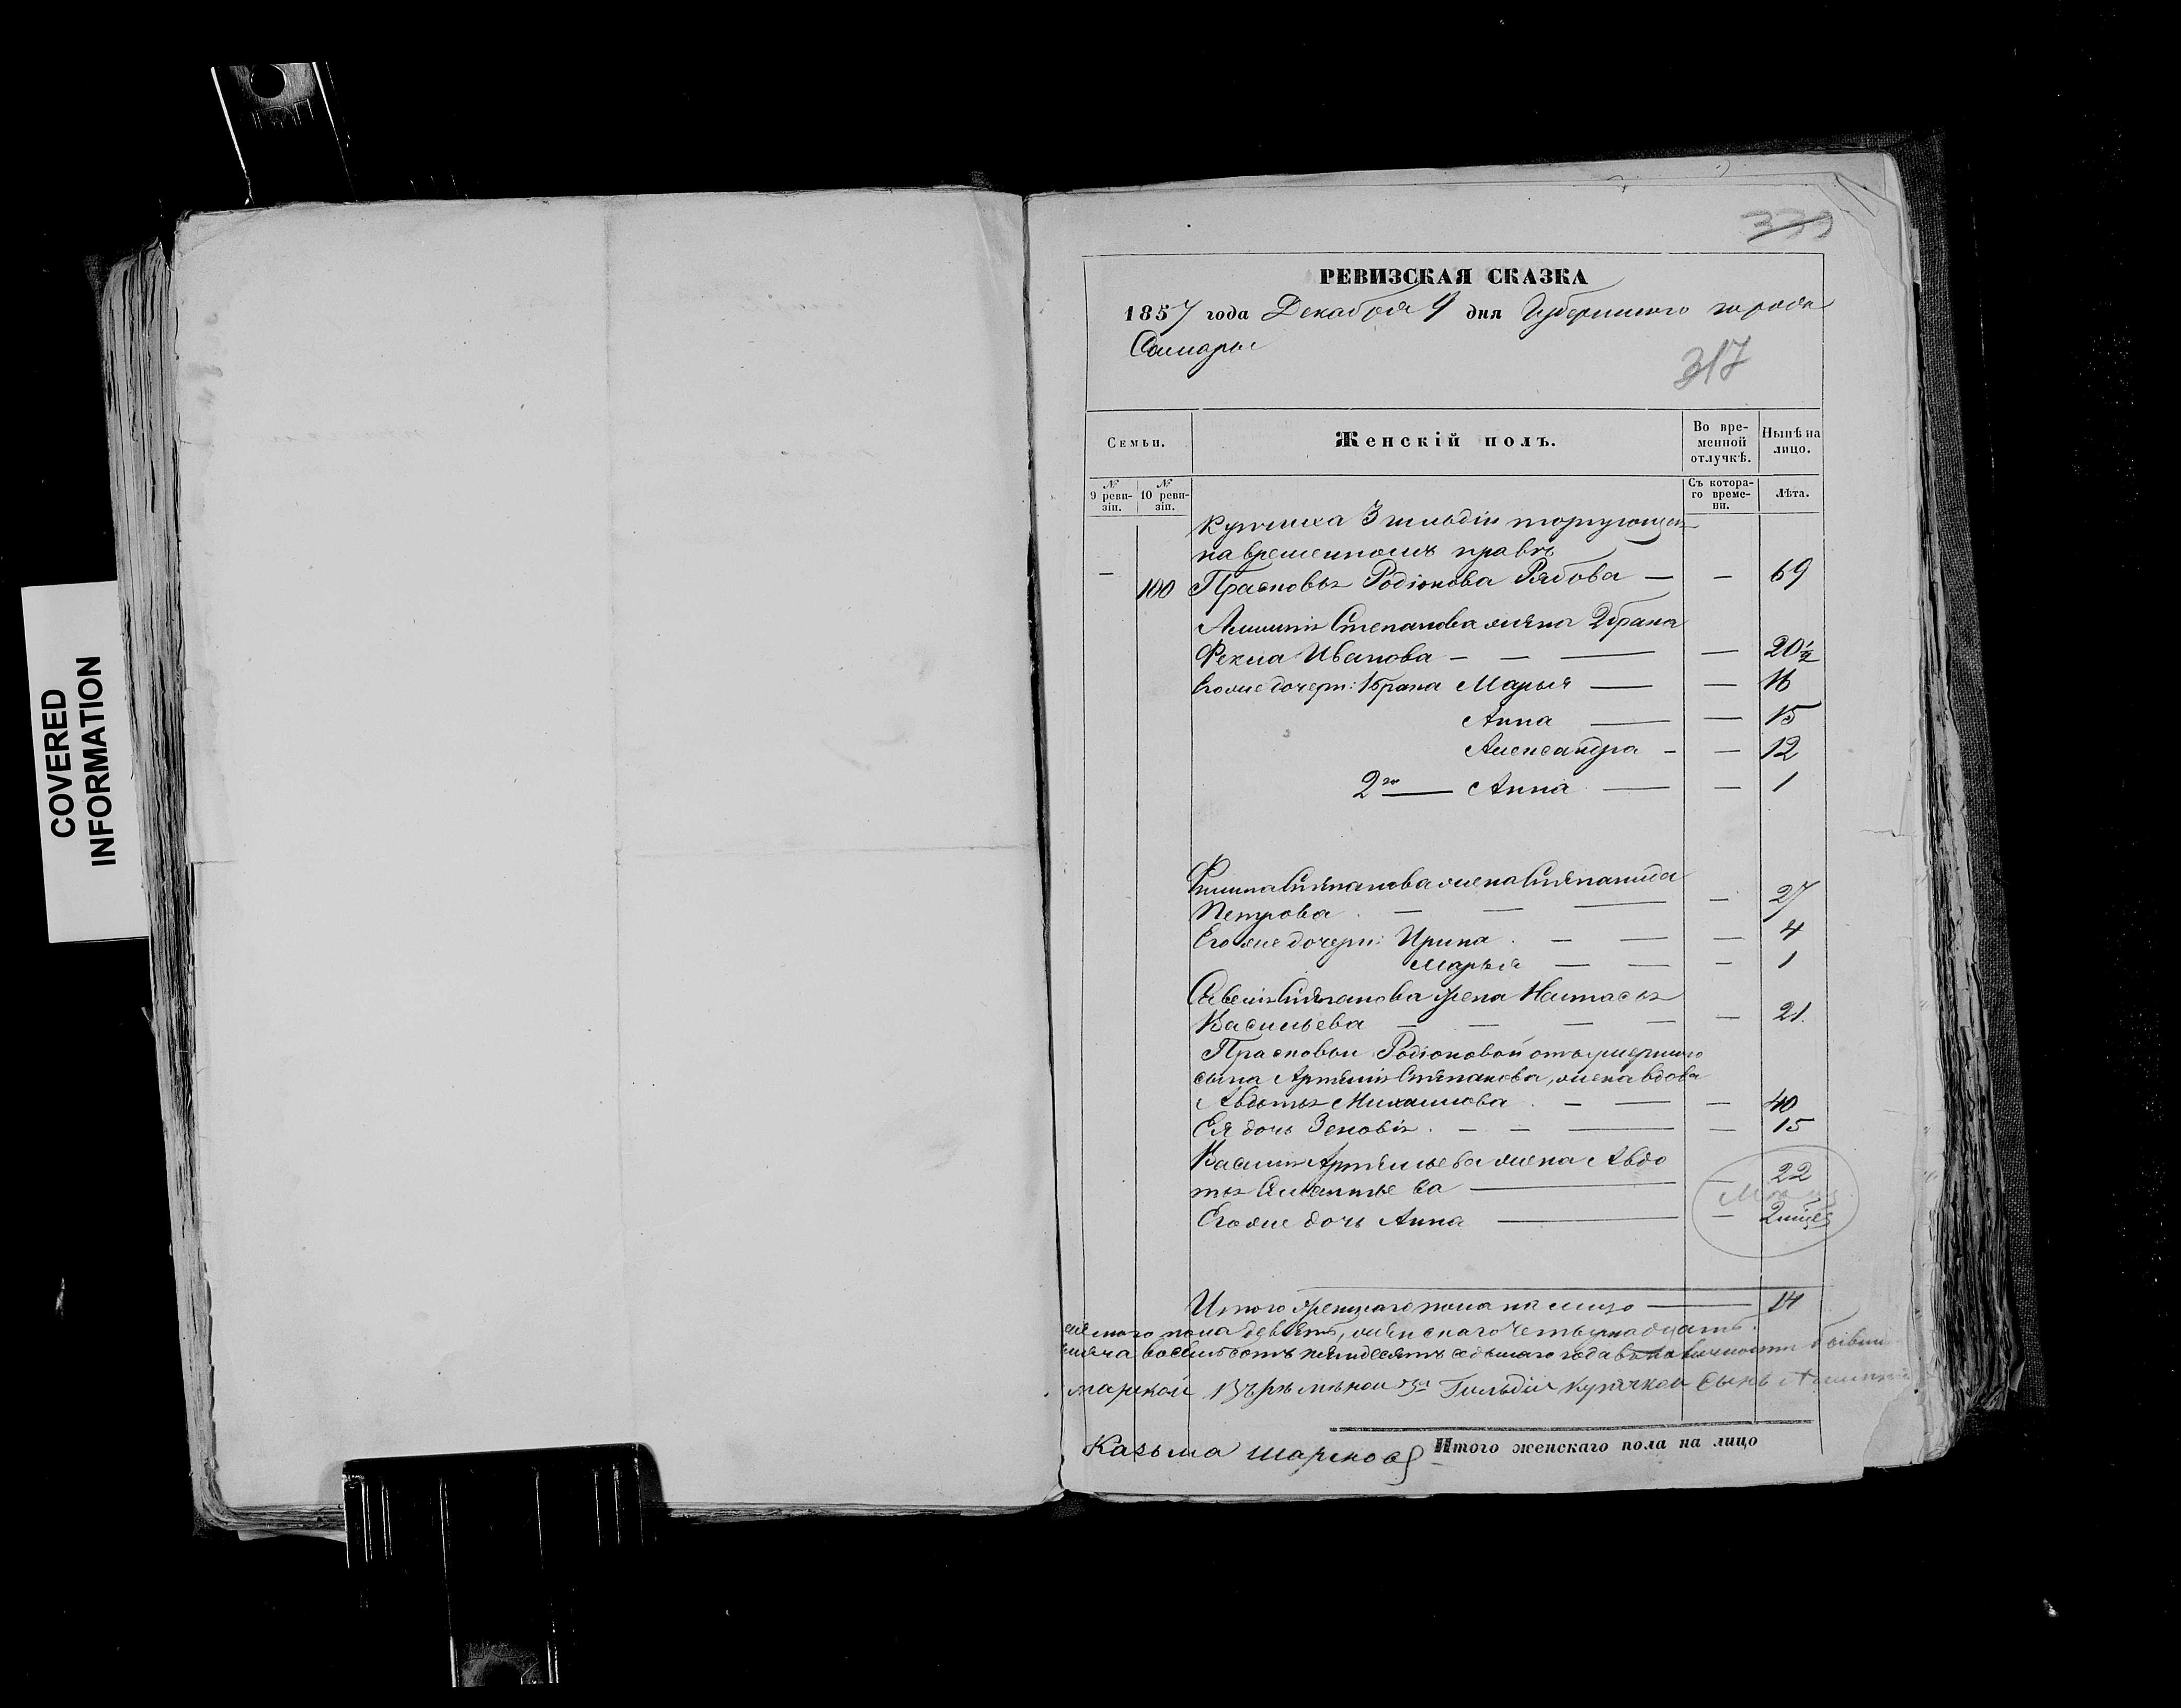 COVERED
INFORMATION
339
РЕВИЗСКАЯ СКАЗКА
1857 года Декабря 9 дня Губернского города
Самары
317
Семьи.
Женскій полъ.
Во вре-
менной
отлучкѣ.
Нынѣ на
лицо.
№
9 реви-
зіи.
№
10 реви-
зіи.
Съ котора-
го време-
ни.
Лѣта.
Купчиха 3 гильдіи торгующая
на временномъ правѣ
— 100 Прасковья Родіонова Рябова — — 69
Степанова жена 2 брака
Фекла Иванова — — — — 20½
Его же дочери: 1 брака Марья — — 16
Анна — — 15
Александра — — 12
2го — Анна — — 1
Филипа Степанова жена Степанида
Петрова — — — — 27
Его же дочери: Ирина — — — 4
Марья — — — 1
Савелія Степанова жена Настасья
Васильева — — — — — 21.
Прасковьи Родіоновой отъ умершаго
сына Артемія Степанова, жена вдова
Авдотья Михаилова — — — 40
Ея дочь Зеновія — — — — 15
Василія Артемьева жена Авдо
тья — — 22
Его же дочь Анна — — 2 мѣся
Итого женскаго пола на лицо — 14
пола девять, женскаго четырнадцать.
восемьсотъ пятьдесятъ седьмаго года
3й Гильдіи сынъ
Казьма
Итого женскаго пола на лицо